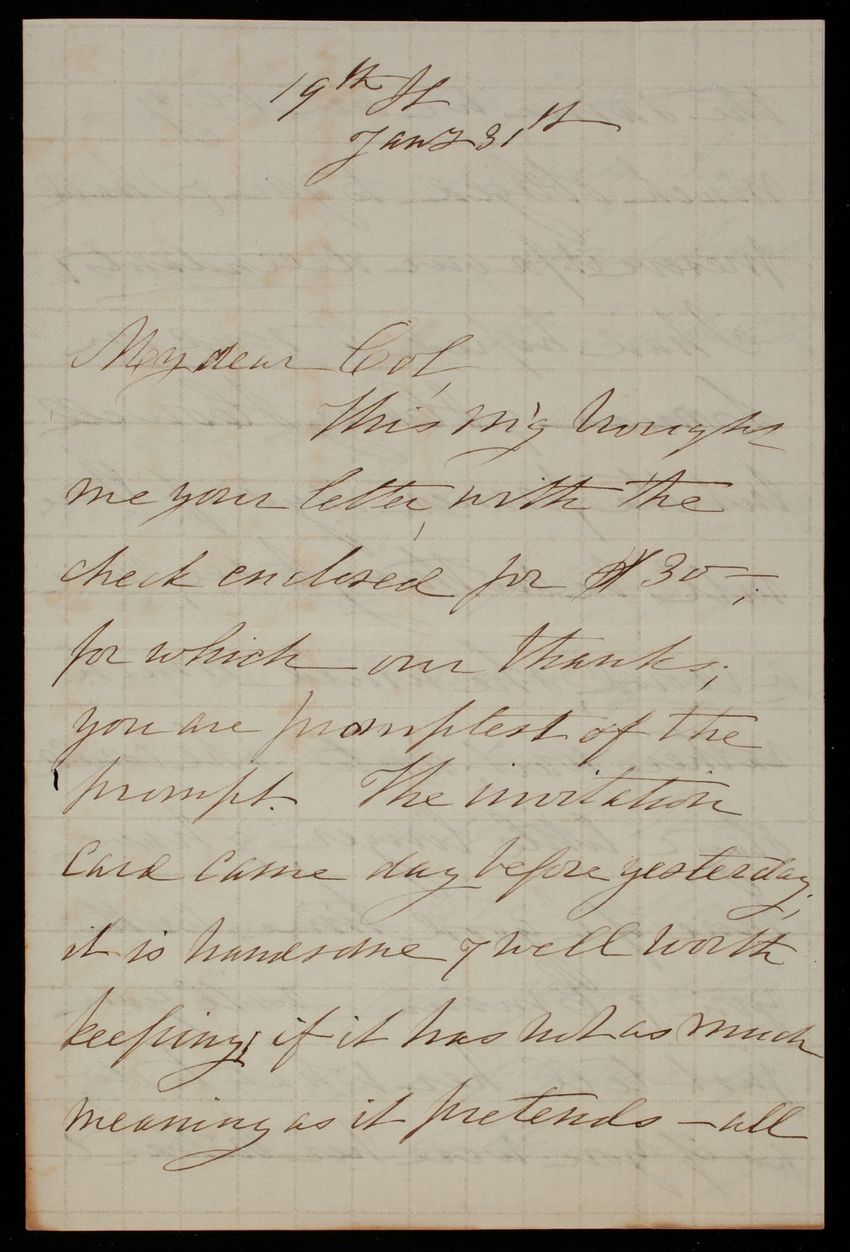 19th St
Jany 31st
My dear Col,
This m'g brought
me your letter, with the
check enclosed for $30—;
for which our thanks;
you are promptest of the
prompt. The invitation
card came day before yesterday;
it is handsome & well worth
keeping, if it has not as much
meaning as it pretends — all